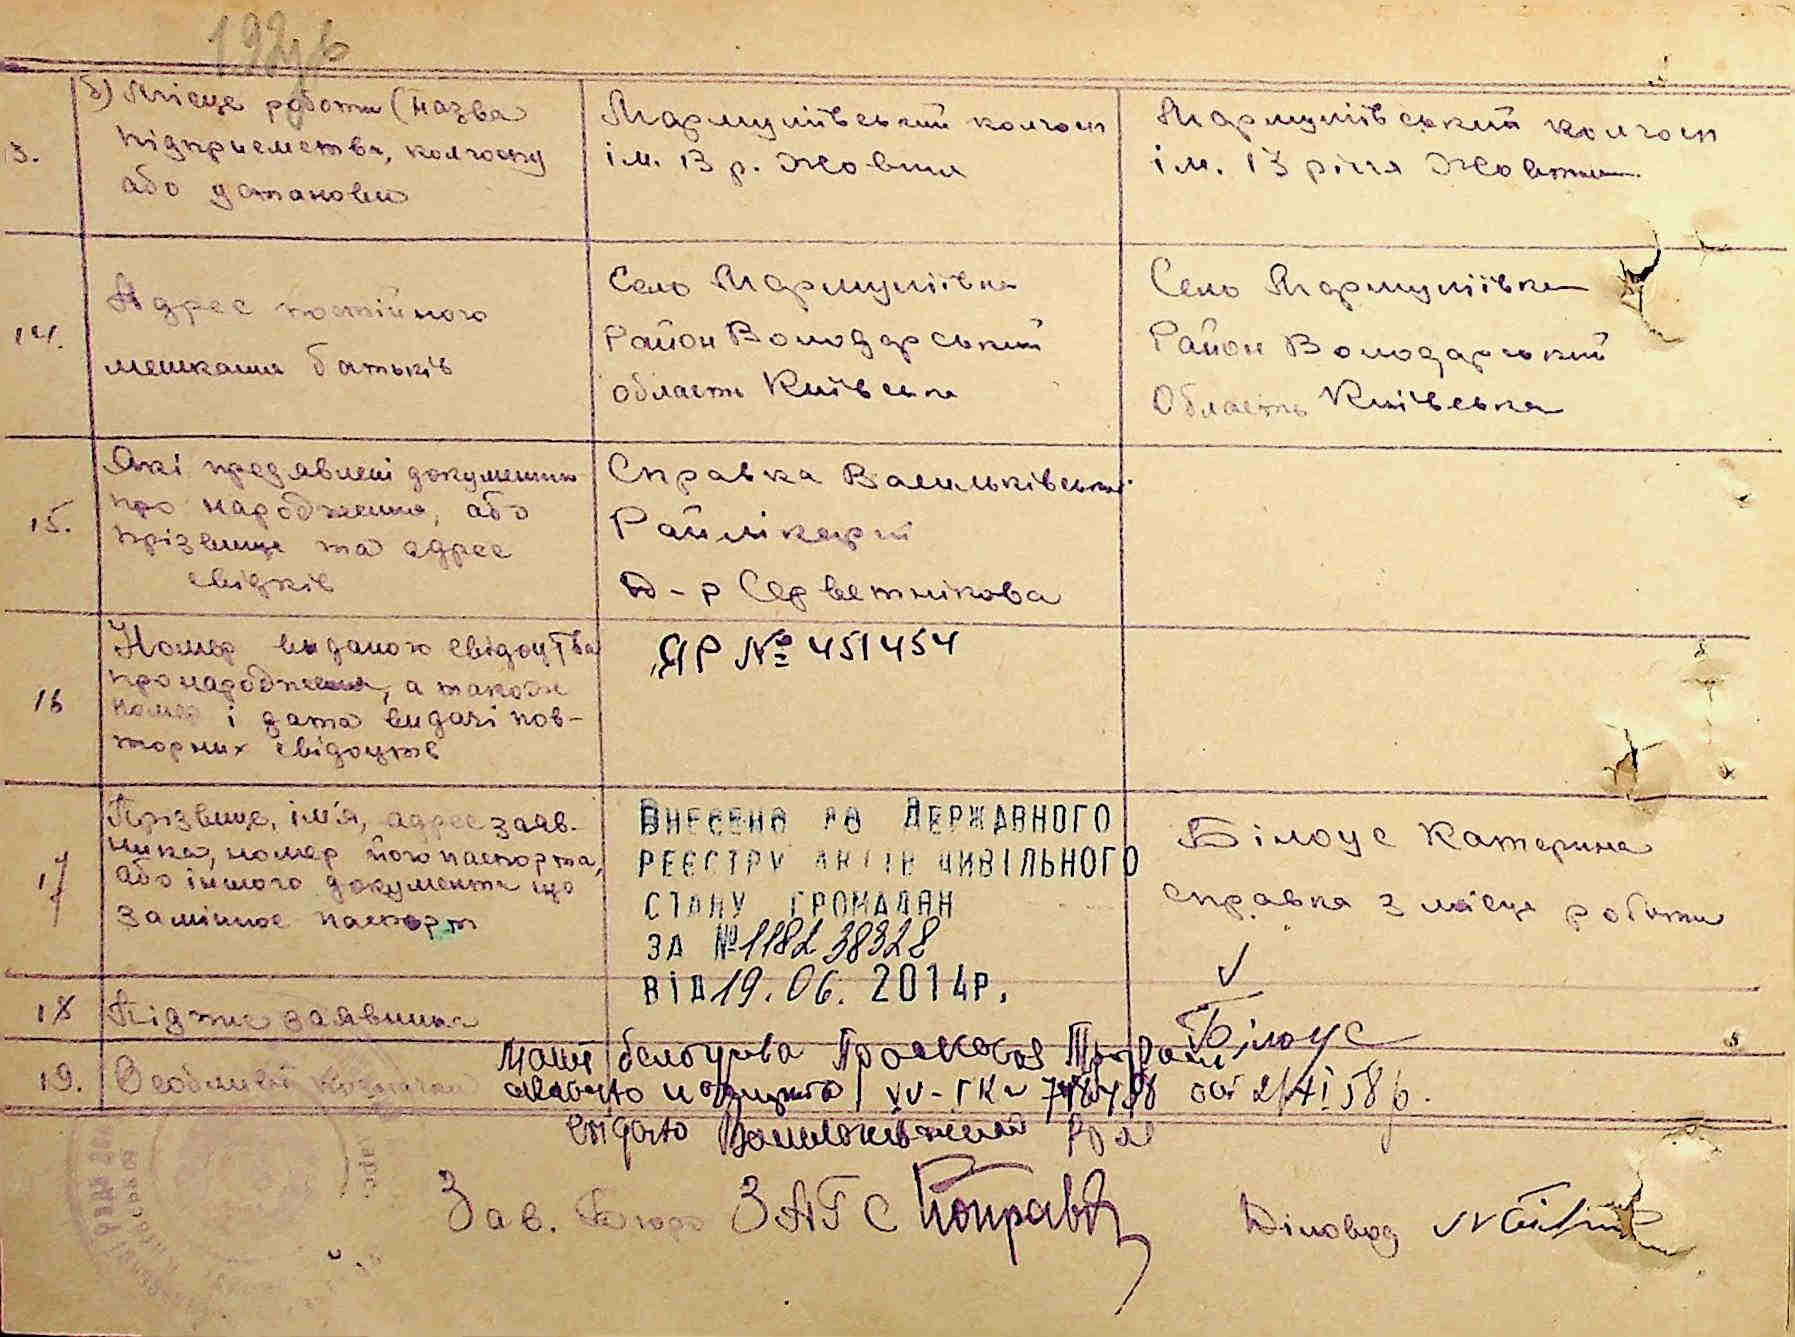 3.
б) Місце роботи (назва
підприємства, колгоспу
або установи
Мармуліївський колгосп
ім. 13 р. Жовтня
Мармуліївський колгосп
ім. 13 річчя Жовтня
14.
Адрес постійного
мешкання батьків
Село Мармуліївка
Район Володарський
область Київська
Село Мармуліївка
Район Володарський
Область Київська
15.
Які предявлені документи
про народження, або
прізвище та адрес
свідків
Справка Васильківської
Райлікарні
Д-р Серветнікова
16
Номер виданого свідоцтва
про народження, а також
номер і дата видачі пов-
торних свідоцтв
ЯР № 451454
17
Прізвище, ім'я, адрес заяв.
ника, номер його паспорта,
або іншого документа що
замінює паспорт
ВНЕСЕНО ДО ДЕРЖАВНОГО
РЕЄСТРУ АКТІВ ЦИВІЛЬНОГО
СТАНУ ГРОМАДЯН
ЗА №11823 8328
ВІД 19.06. 2014р.
Білоус Катерина
справка з місця роботи
18
Підпис заявника
Білоус
19.
Особливі
видано
Зав. Бюро ЗАГС
Діловод